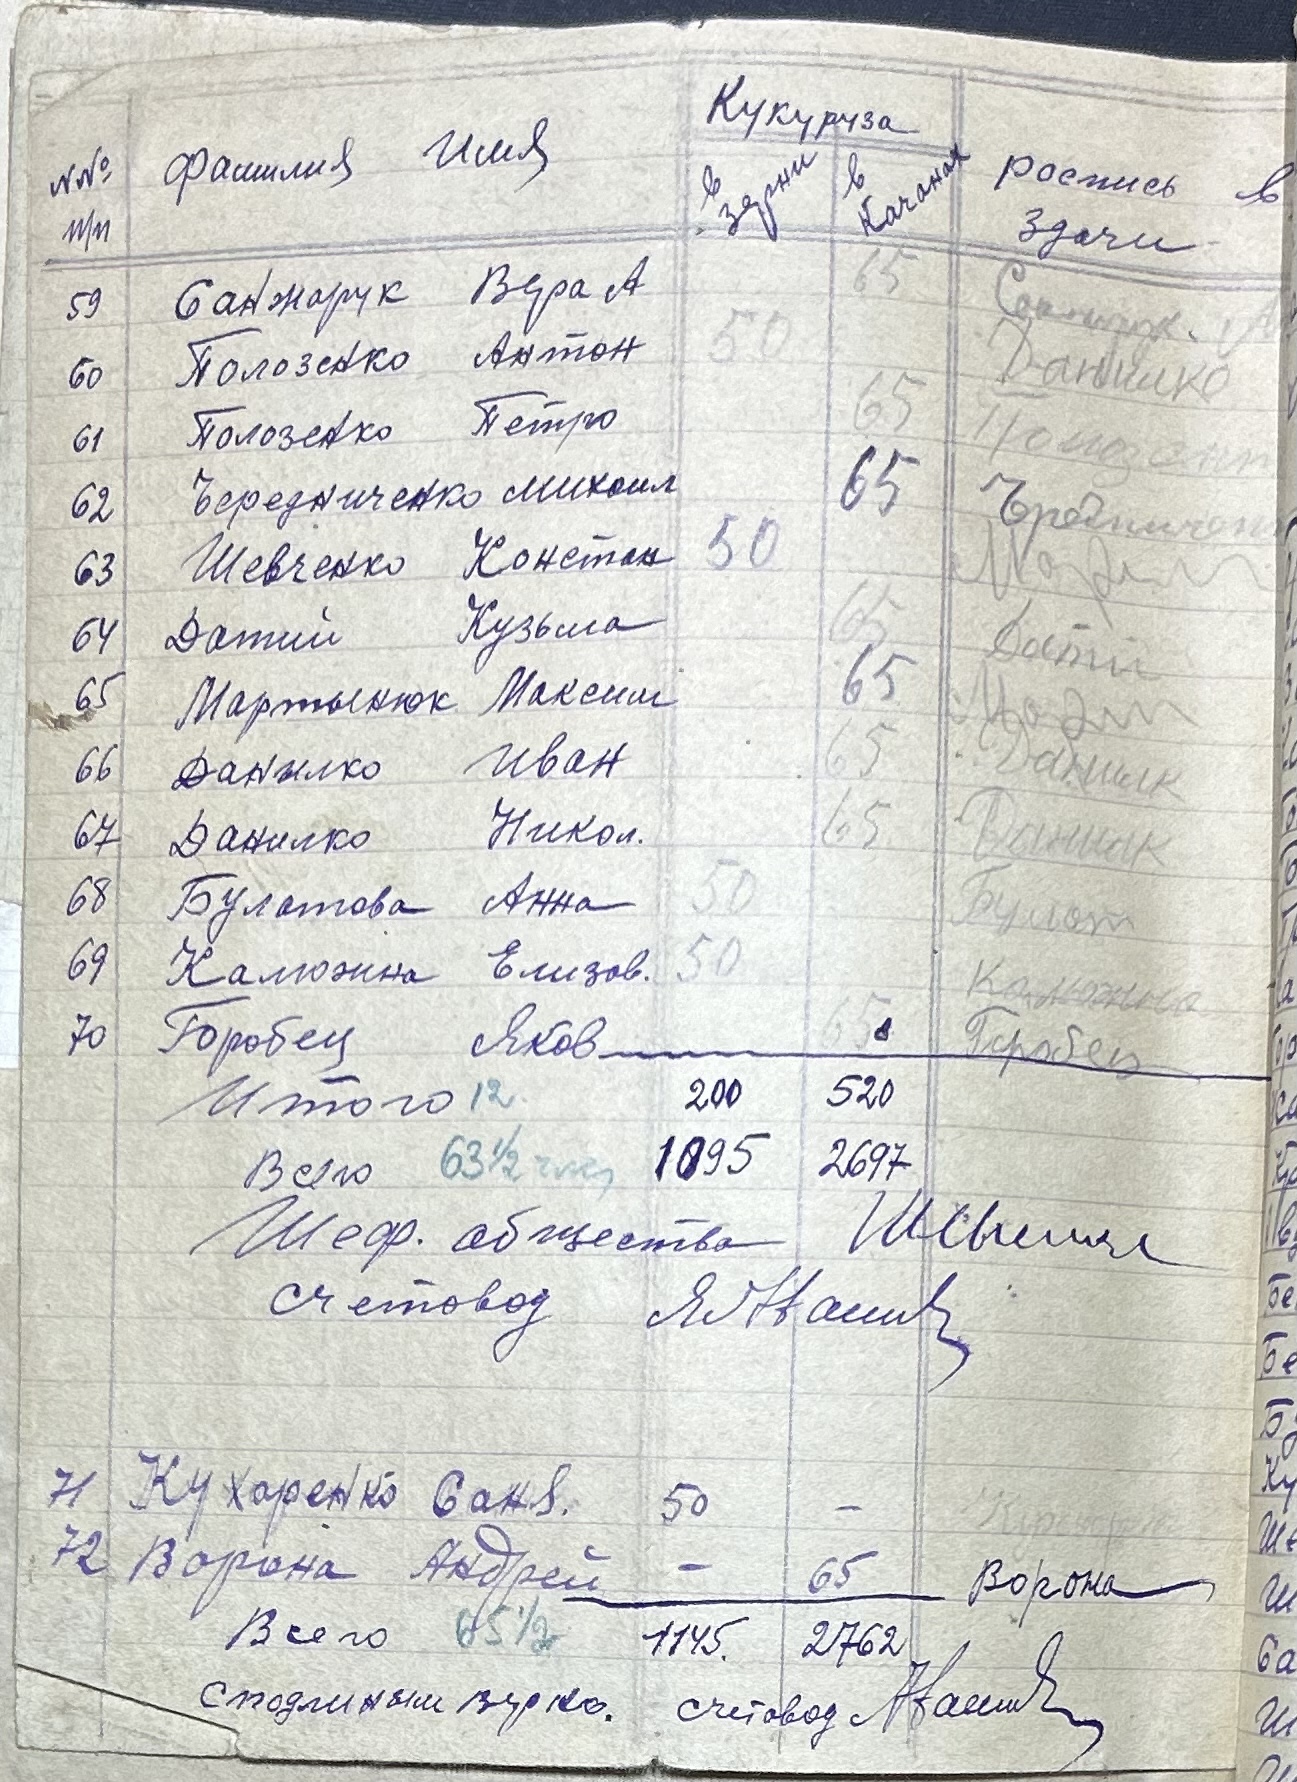 Кукуруза
№№ п/п Фамилия Имя в зерни в качанах роспись в здачи
59 Санжарук Вера А 65
60 Полозенко Антон 50 Данилко
61 Полозенко Петро 65
62 Чередниченко Михаил 65
63 Шевченко Констан 50
64 Датий Кузьма 65 Датий
65 Мартынюк Максим 65
66 Данилко Иван 65 Данилк
67 Данилко Никол. 65 Данилк
68 Булатова Анна 50 Булат
69 Калюжна Елизов. 50 Калюжна
70 Горобец Яков 65 Горобец
Итого 12 200 520
Всего 63 1/2 1095 2697
Шеф. общества
счетовод
71 Кухоренко Саня. 50 -
72 Ворона Андрей - 65 Ворона
Всего 65 1/2 1145. 2762
сподлиным верно. счетовод